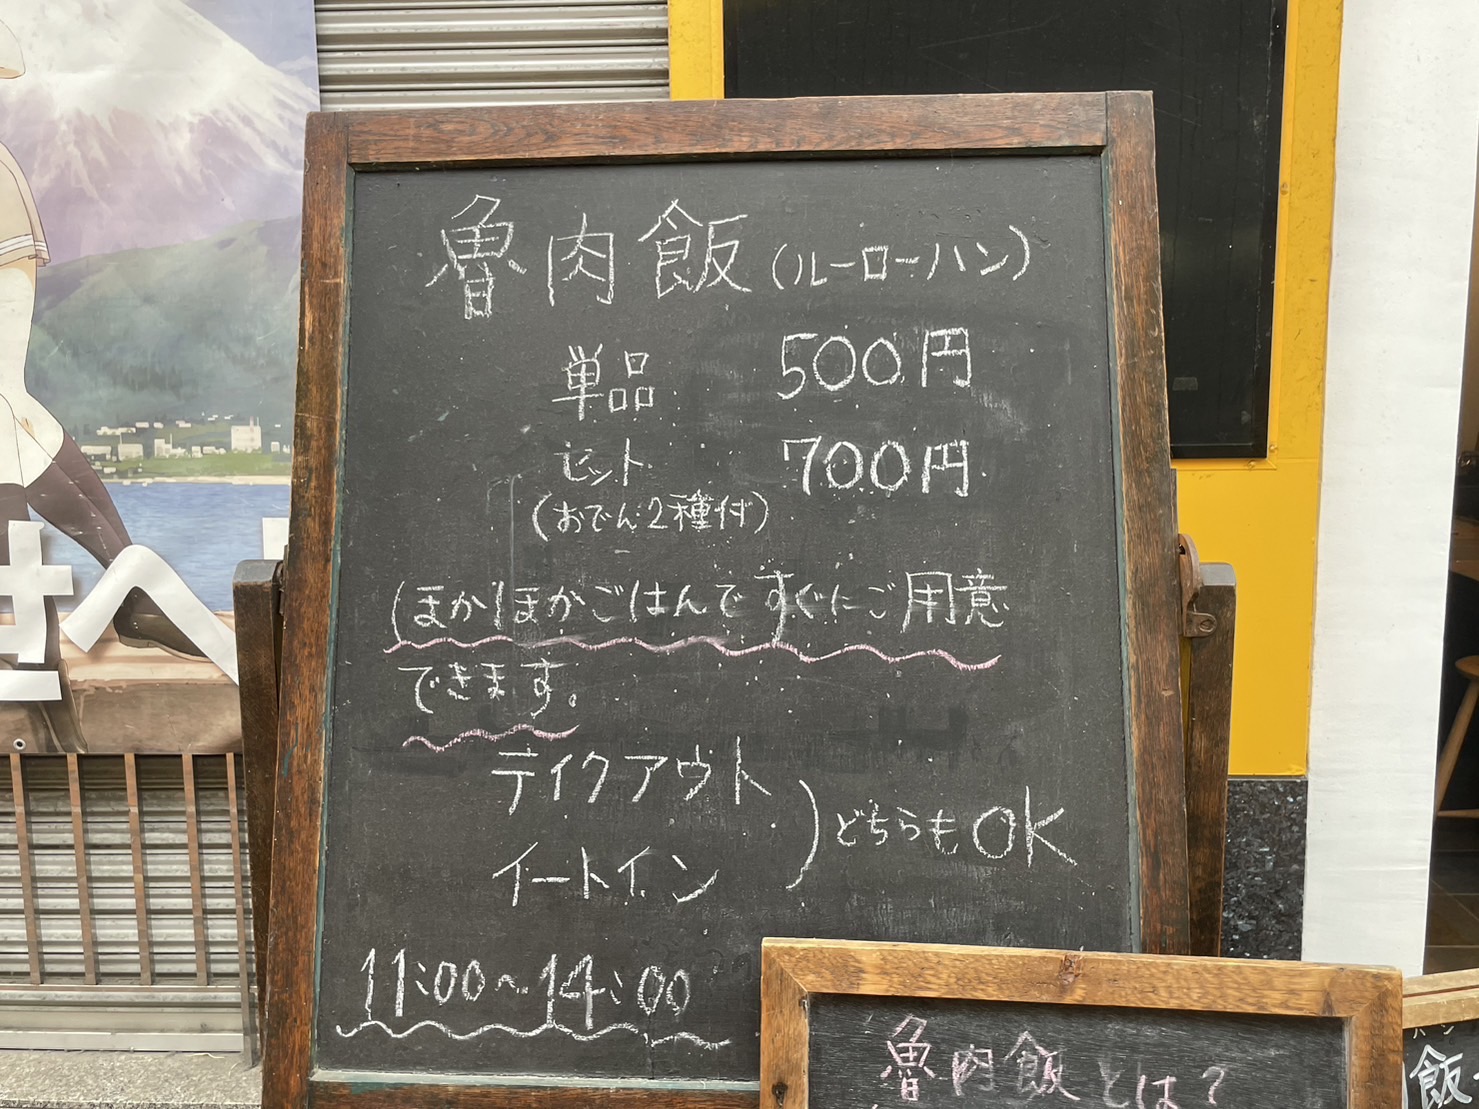 魯肉飯(ルーローハン)
単品 500円
セット 700円
(おでん2種付)
(ほかほかごはんですぐにご用意
できます。
テイクアウト
イートイン
)どちらもOK
11:00〜14:00
魯肉飯とは?
飯
せへ